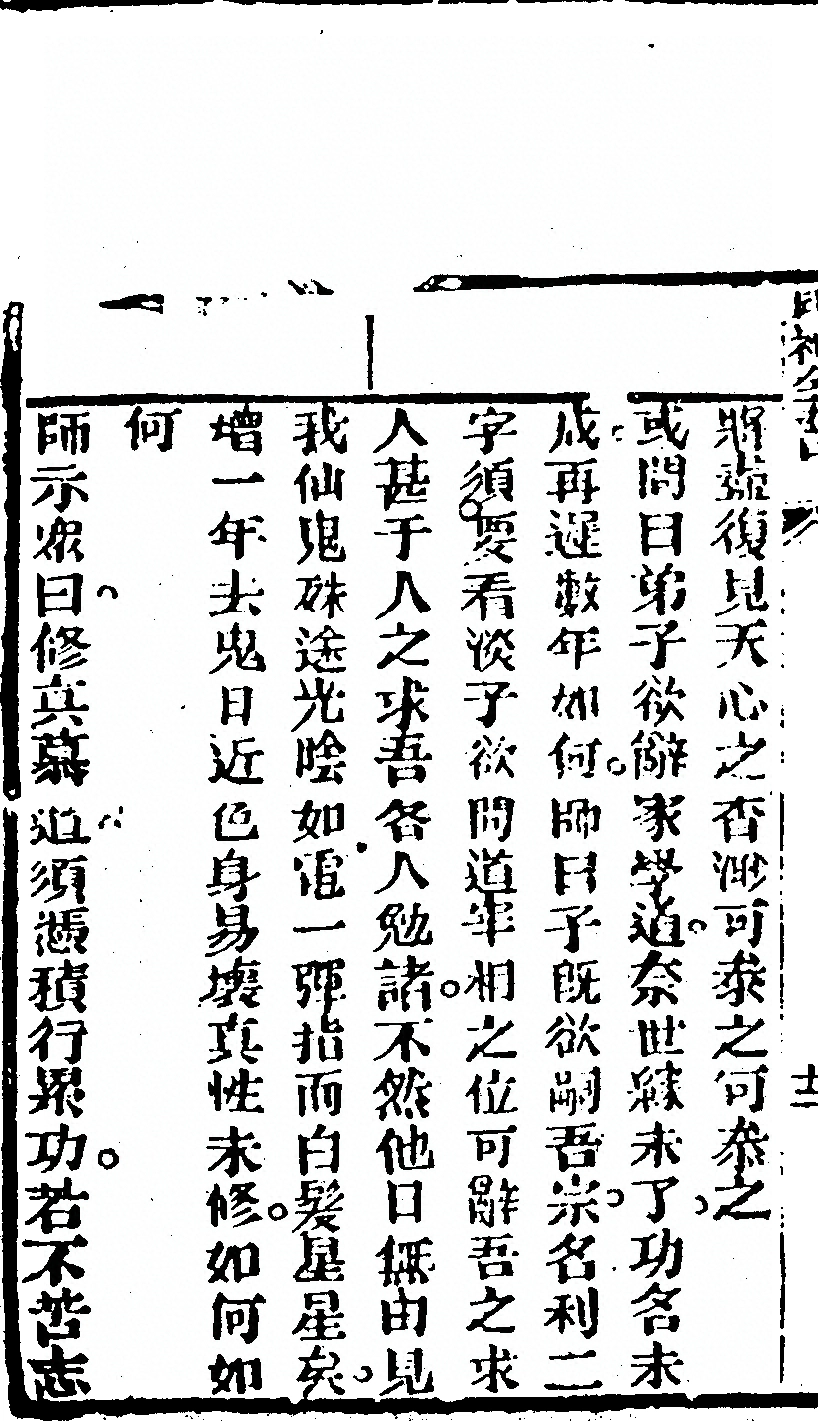 將壺復見天心之杳渺可泰之可泰之
或問曰弟子欲辭家學道奈世緣未了功名未
成再遲數年如何師曰子既欲嗣吾宗名利二
字須要看淡子欲問道宰相之位可辭吾之求
人甚于人之求吾各人勉諸不然他日無由見
我仙鬼殊途光陰如電一彈指而白髮星星矣
增一年去鬼日近色身易壞真性未修如何如
何
師示眾曰修真慕道須憑積行累功若不苦志
十二